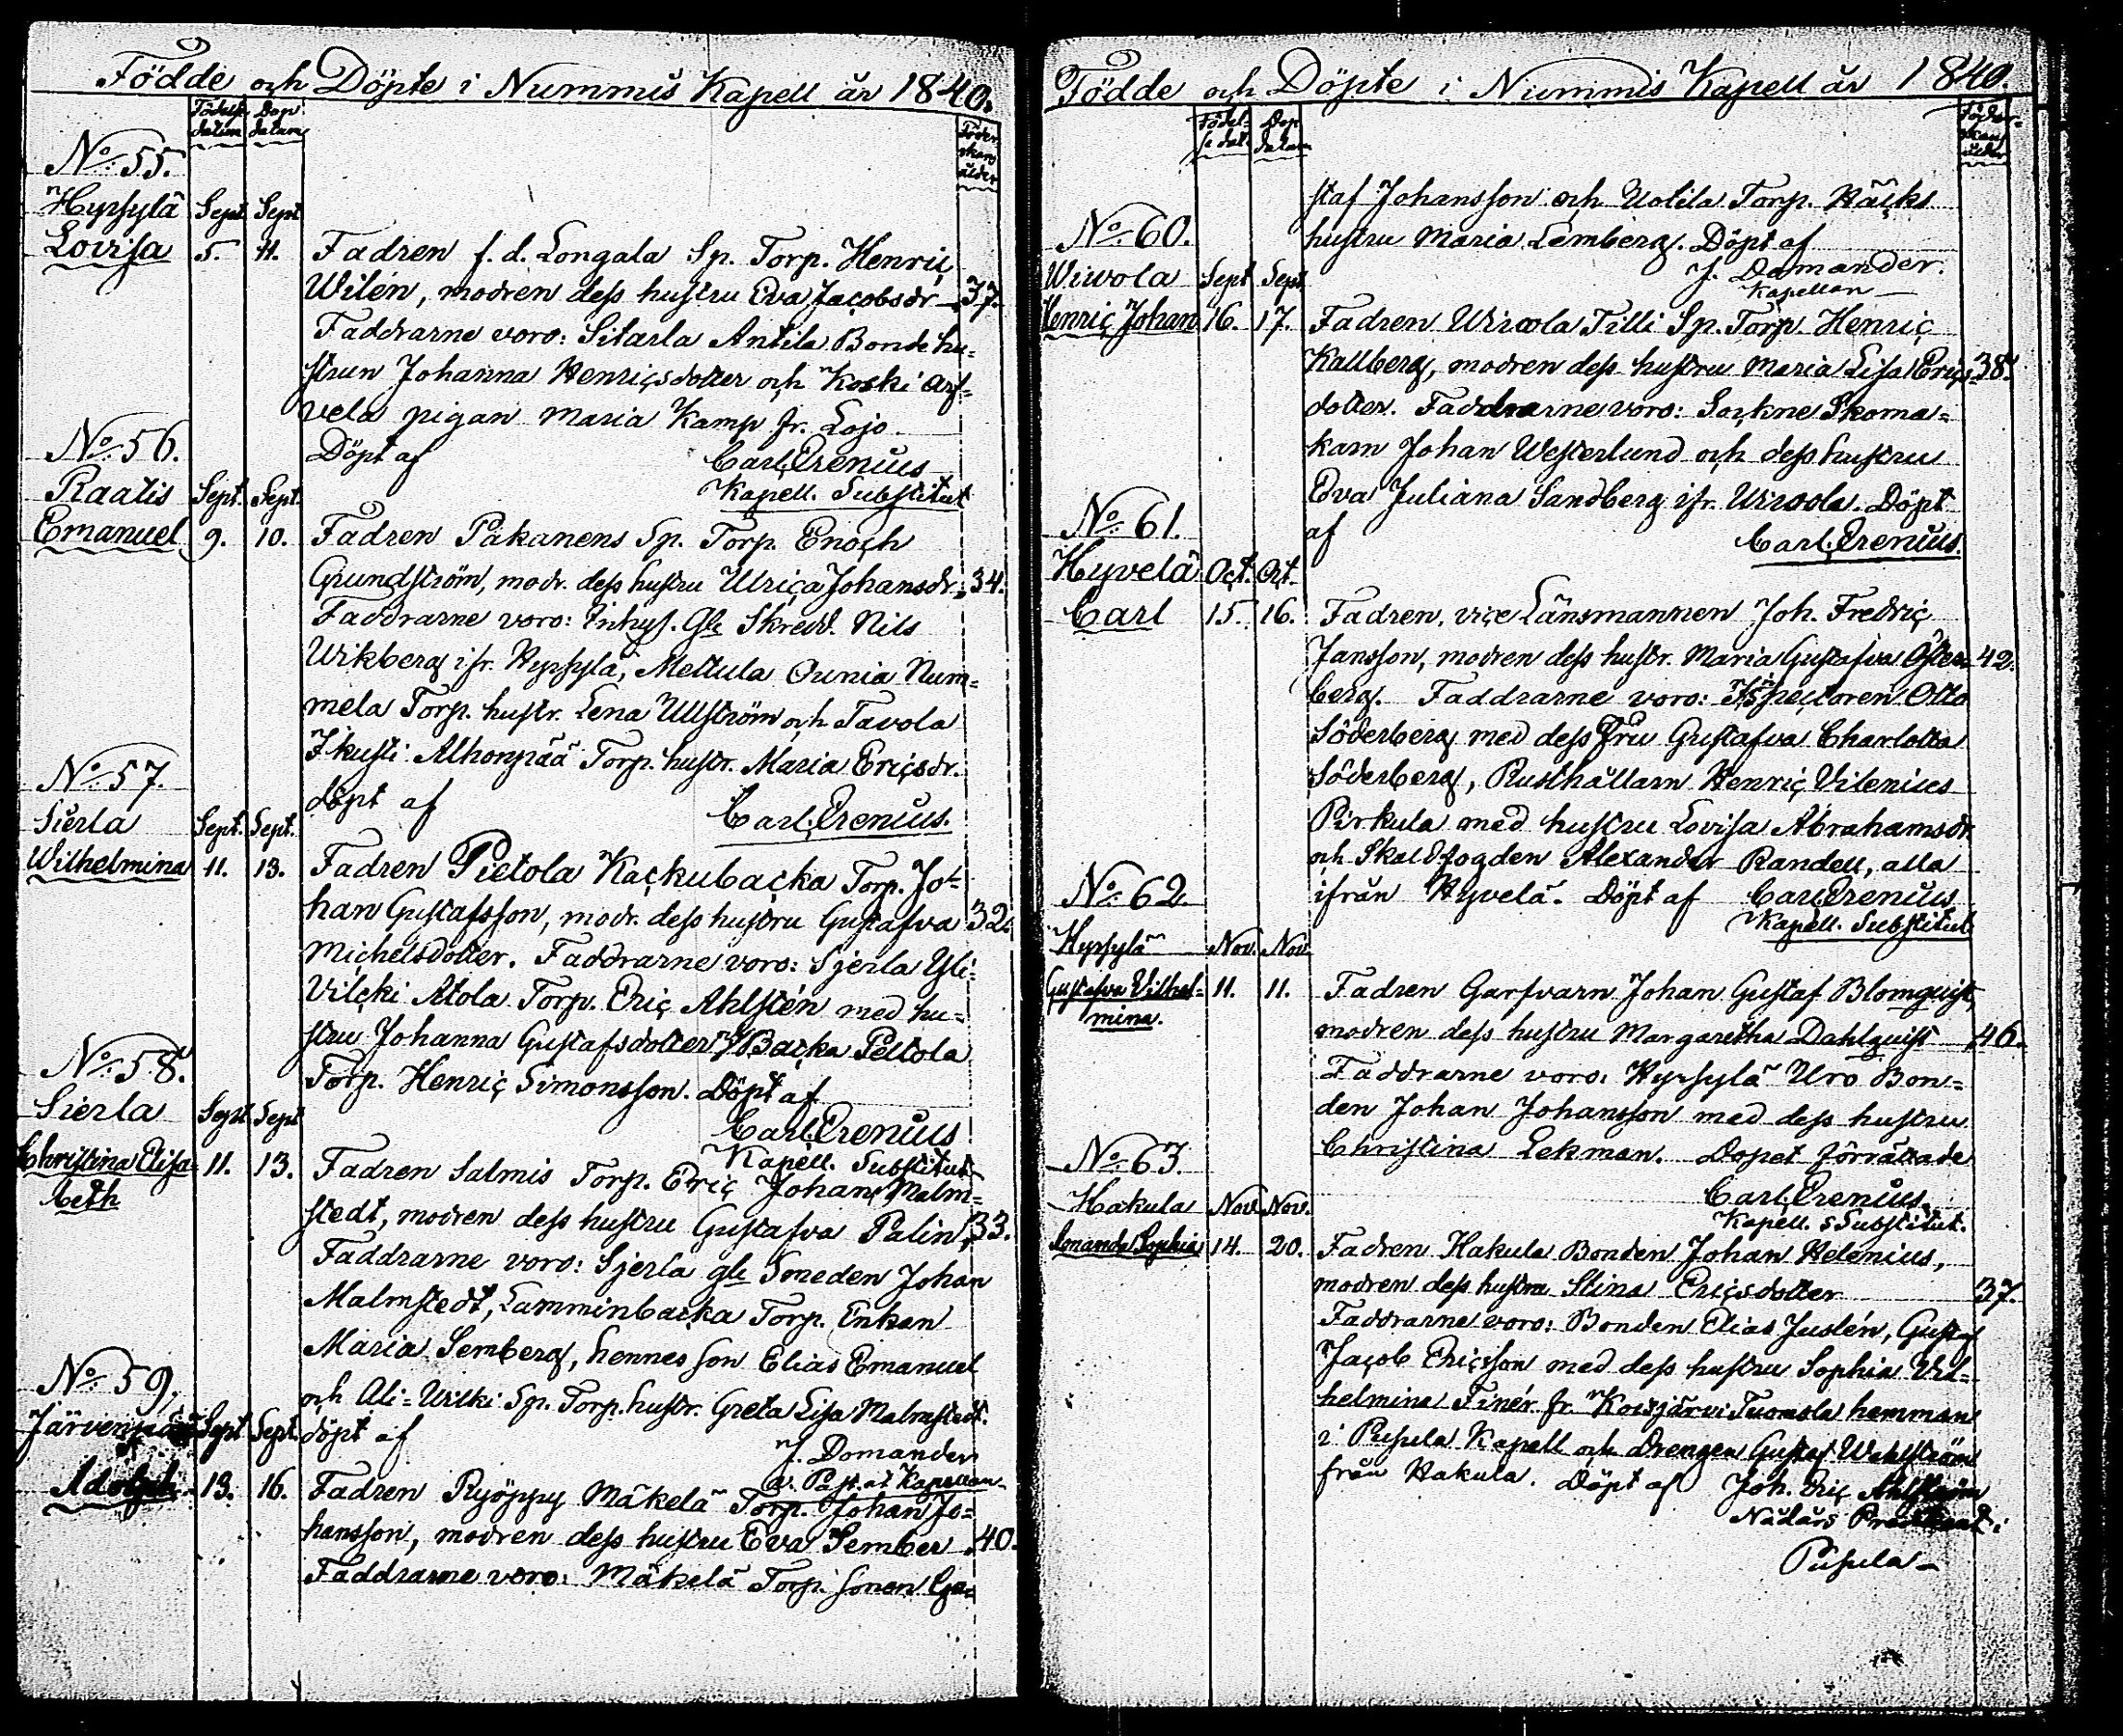 Födde och Döpte i Nummis Kapell år 1840.
Födelse datum Dop datum
Föderskans ålder
No 55.
Hyrsylä Sept. Sept.
Lovisa 5. 11. Fadren f. d. Longala Sp. Torp. Henric
Wilén, modren dess hustru Eva Jacobsdr. 37.
Faddrarne voro: Sitarla Antila Bonde hu-
strun Johanna Henricsdotter och Koski Arf-
vela pigan Maria Kamp fr. Lojo.
Döpt af Carl Erenius
Kapell. Substitut
No 56.
Raatis Sept. Sept.
Emanuel 9. 10. Fadren Pakanens Sp. Torp. Enoch
Grundström, modr. dess hustru Ulrica Johansdr. 34.
Faddrarne voro: Inhys. Gle Skredd. Nils
Wikberg ifr. Hyrsylä, Mettula Ounia Num-
mela Torp. hustr. Lena Ullström och Tavola
Ikusti Alhonpää Torp. hustr. Maria Ericsdr.
döpt af Carl Erenius.
No 57.
Sierla Sept. Sept.
Wilhelmina 11. 13. Fadren Pietola Kackubacka Torp. Jo-
han Gustafsson, modr. dess hustru Gustafva 32.
Michelsdotter. Faddrarne voro: Sjerla Yli-
Vilcki Atola Torp. Eric Ahlstén med hu-
stru Johanna Gustafsdotter Backa Peltola
Torp. Henric Simonsson. Döpt af
Carl Erenius
Kapell. Substitut
No 58.
Sierla Sept. Sept.
Christina Elisa- 11. 13. Fadren Salmis Torp. Eric Johan Malm-
beth
stedt, modren dess hustru Gustafva Palin, 33.
Faddrarne voro: Sjerla gle Smeden Johan
Malmstedt, Lamminbacka Torp. Enkan
Maria Semberg, hennes son Elias Emanuel
och Ali-Wilki Sp. Torp. hustr. Greta Lisa Malmstedt.
döpt af J. Domander
v. Past. at Kapellan
No 59.
Järvenpää Sept. Sept.
Adolph 13. 16. Fadren Ryöppy Mäkelä Torp. Johan Jo-
hansson, modren dess hustru Eva Sember 40.
Faddrarne voro: Mäkelä Torp. sonen Gu-
Födde och Döpte i Nummis Kapell år 1840.
Födel-se dat. Dop datum
Föderskans ålder
staf Johansson och Uotila Torp. Häcks
hustru Maria Lemberg. Döpt af
J. Domander.
Kapellan
No 60.
Wirvola Sept. Sept.
Henric Johan 16. 17. Fadren Wirvola Tilli Sp. Torp. Henric
Kallberg, modren dess hustru Maria Lisa Erics- 38.
dotter. Faddrarne voro: Sockne Skoma-
karn Johan Westerlund och dess hustru
Eva Juliana Sandberg ifr. Wirvola. Döpt
af Carl Erenius.
No 61.
Hyvelä Oct. Oct.
Carl 15. 16. Fadren, vice Länsmannen Joh. Fredric
Jansson, modren dess hustr. Maria Gustafva Öster- 42.
berg. Faddrarne voro: Inspectoren Otto
Söderberg med dess Fru Gustafva Charlotta
Söderberg, Rusthållarn Henric Vilenius
Pirkula med hustru Lovisa Abrahamsdr.
och Skallfogden Alexander Randell, alla
ifrån Hyvelä. Döpt af Carl Erenius
Kapell. Substitut
No 62
Hyrsylä Nov. Nov.
Gustafva Vilhel- 11. 11. Fadren Garfvarn Johan Gustaf Blomquist,
mina.
modren dess hustru Margaretha Dahlquist 46.
Faddrarne voro: Hyrsylä Uro Bon-
den Johan Johansson med dess hustru
Christina Lekman. Dopet förrättade
Carl Erenius.
Kapell. Substitut.
No 63.
Hakula Nov. Nov.
Amanda Sophia 14. 20. Fadren Hakula Bonden Johan Helenius,
modren dess hustru Stina Ericsdotter 37.
Faddrarne voro: Bonden Elias Juslén, Gustaf
Jacob Ericsson med dess hustru Sophia Vil-
helmina Finér fr. Koisjärvi Tuomola hemman
i Pusula Kapell och drengen Gustaf Wahlström
från Hakula. Döpt af Joh. Eric Ahlström
Nådårs Predikant i
Pusula